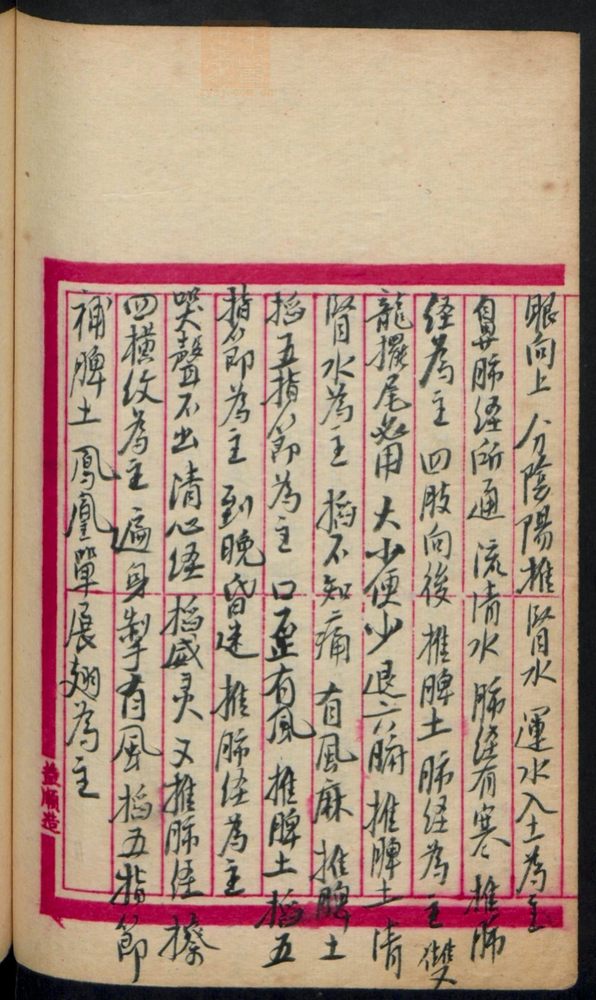 眼向上 分陰陽推腎水 運水入土為主
鼻肺經所通 流清水 肺経有寒 推肺
経為主 四肢向後 推脾土 肺経為主 雙
龍擺尾必用 大小便少 退六腑 推脾土 清
腎水為主 掐不知痛 有風麻 推脾土
掐五指節為主 口歪有風 推脾土 掐五
指節為主 到晚昏迷 推肺经為主
哭聲不出 清心経 掐威灵 又推肺经 揉
四橫纹為主 遍身掣有風 掐五指節
補脾土 鳳凰單展翅為主
益順造